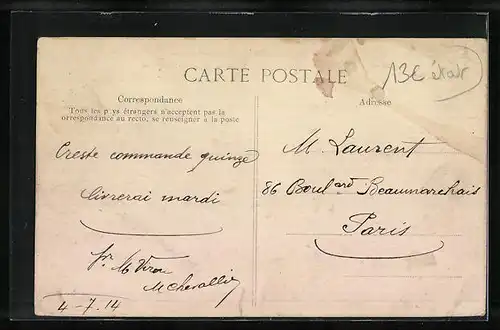 CARTE POSTALE
13€ état
Correspondance
Tous les pays étrangers n'acceptent pas la
correspondance au recto, se renseigner à la poste
Adresse
Creste commande quinze
livrerai mardi
pr. M Viron
M Chevallier
4-7.14
M. Laurent
86 Boulard Beaumarchais
Paris